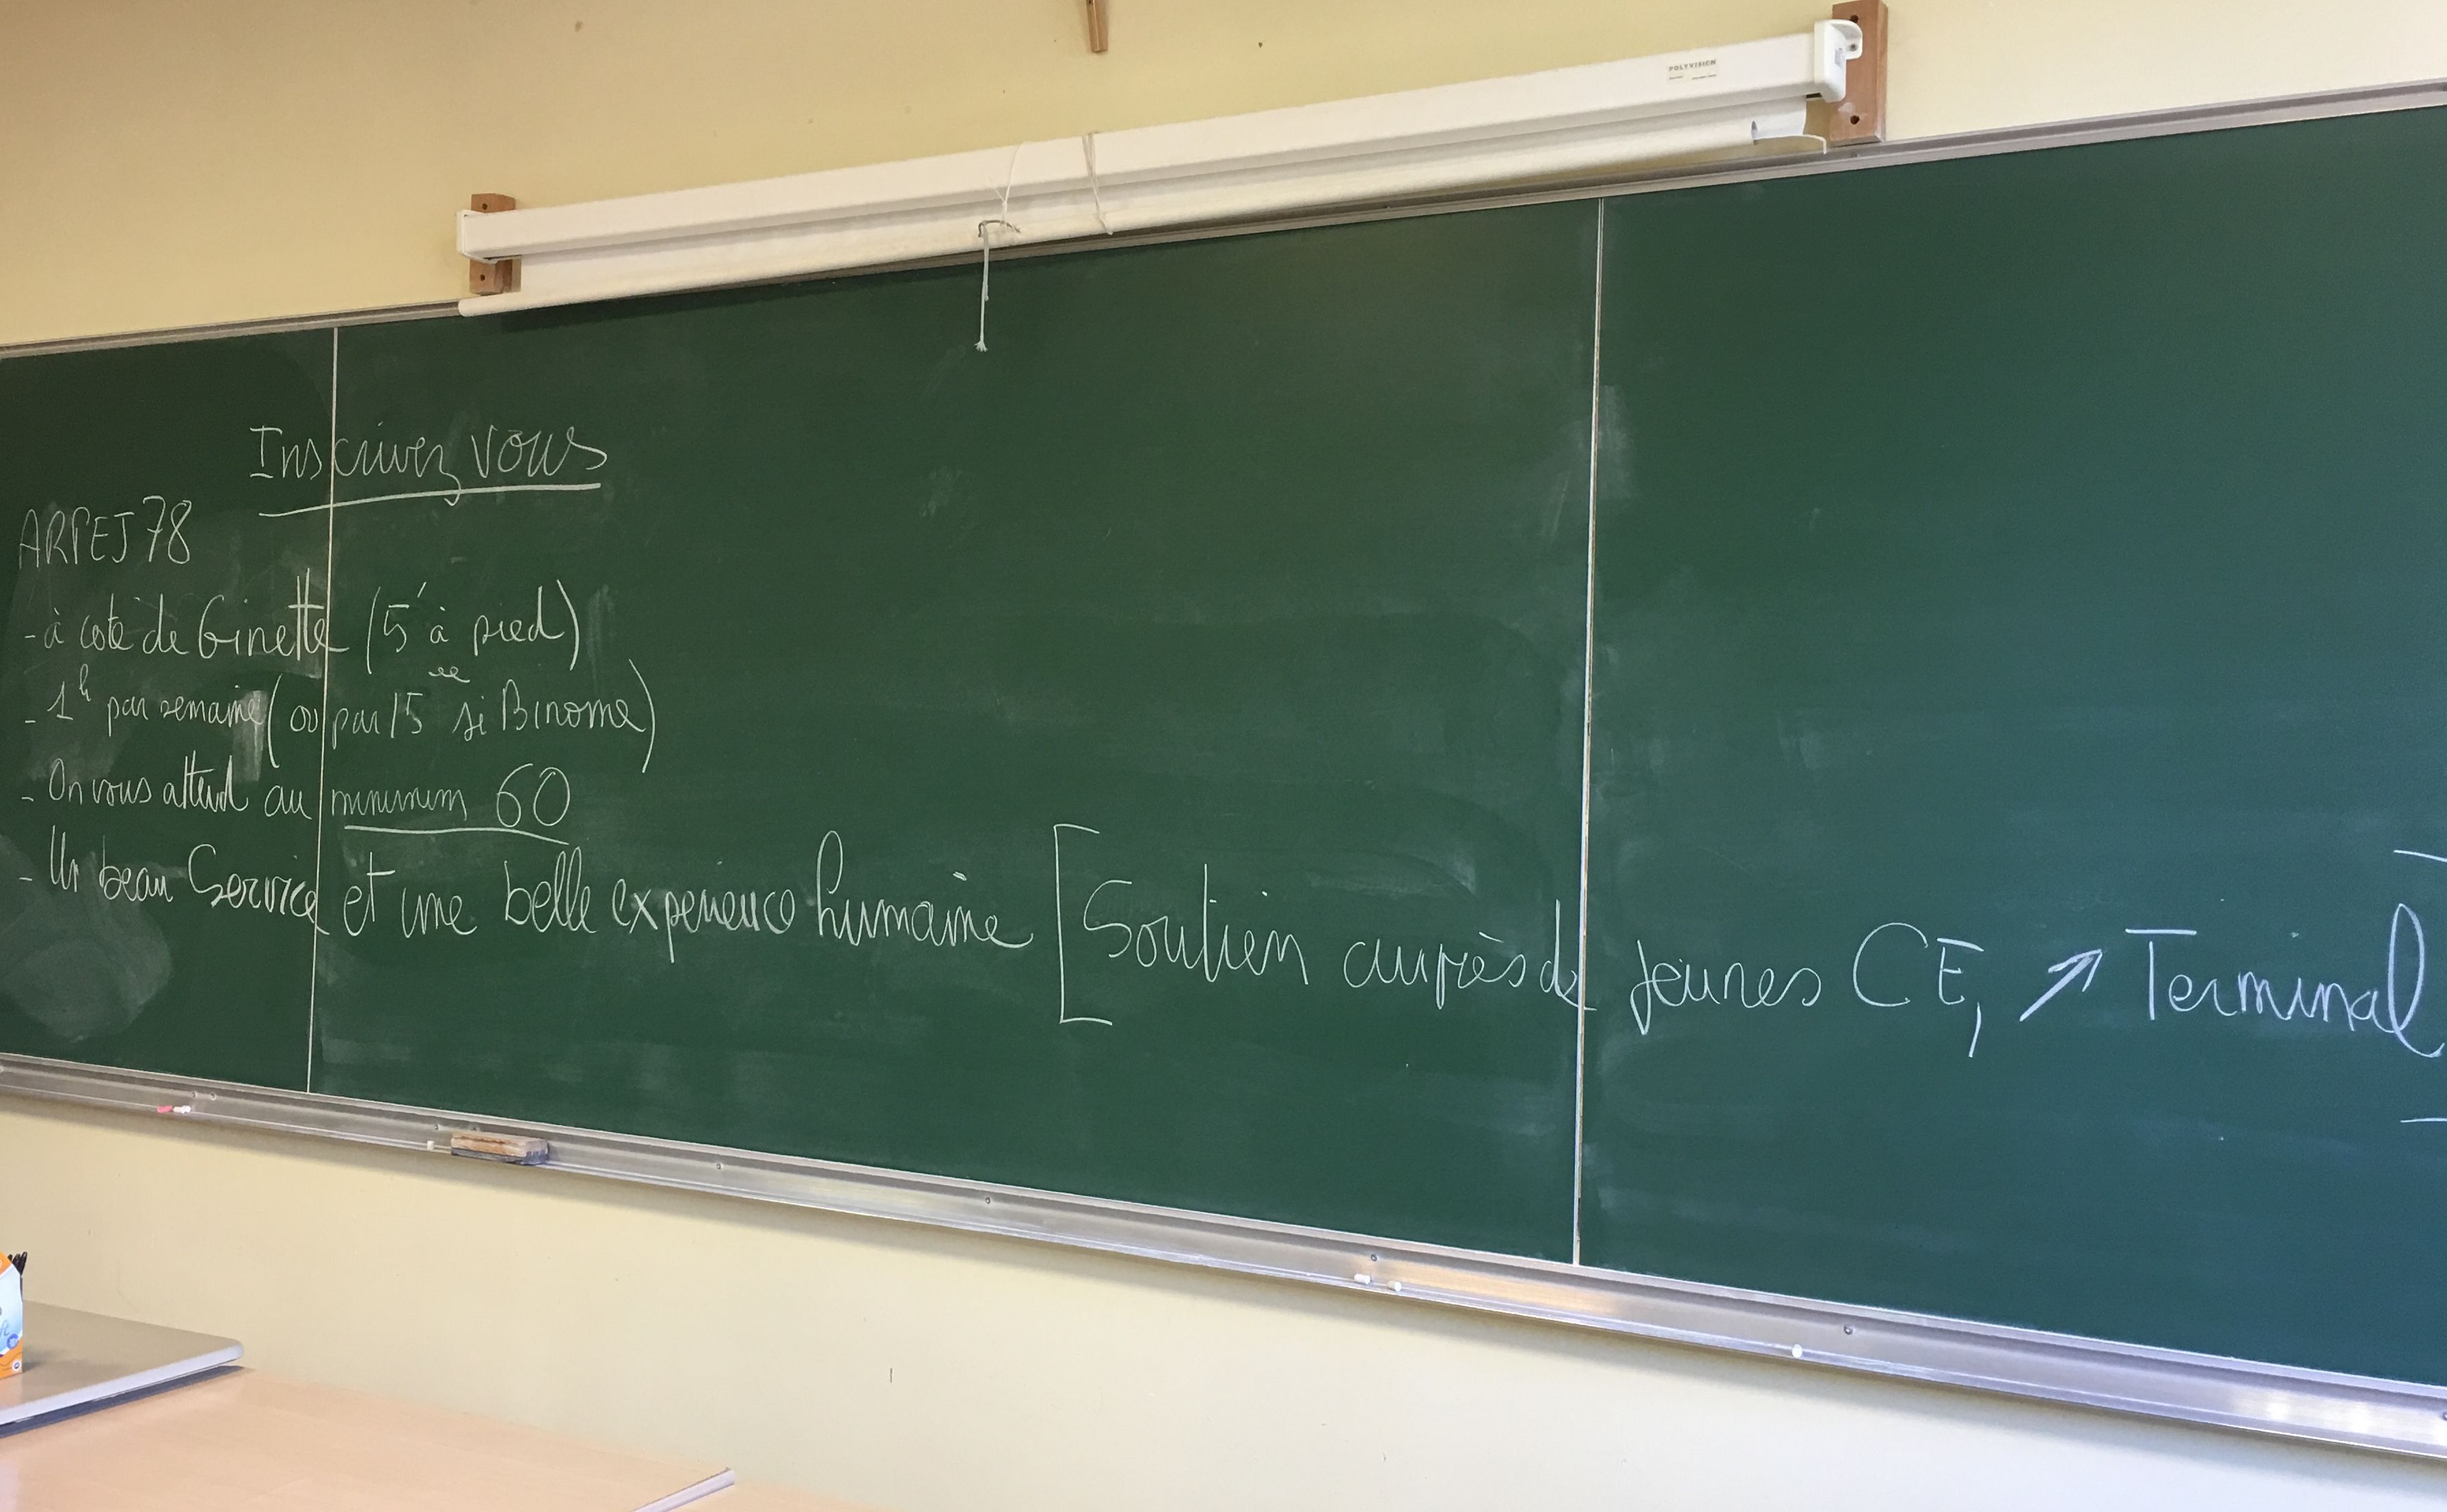 POLYVISION
Inscrivez vous
ARPEJ 78
- à coté de Ginette (5' à pied)
- 1h par semaine (ou par 15ee si Binome)
- On vous attend au minimum 60
- Un beau Service et une belle experience humaine [Soutien auprès de jeunes CE1 ↗ Terminal